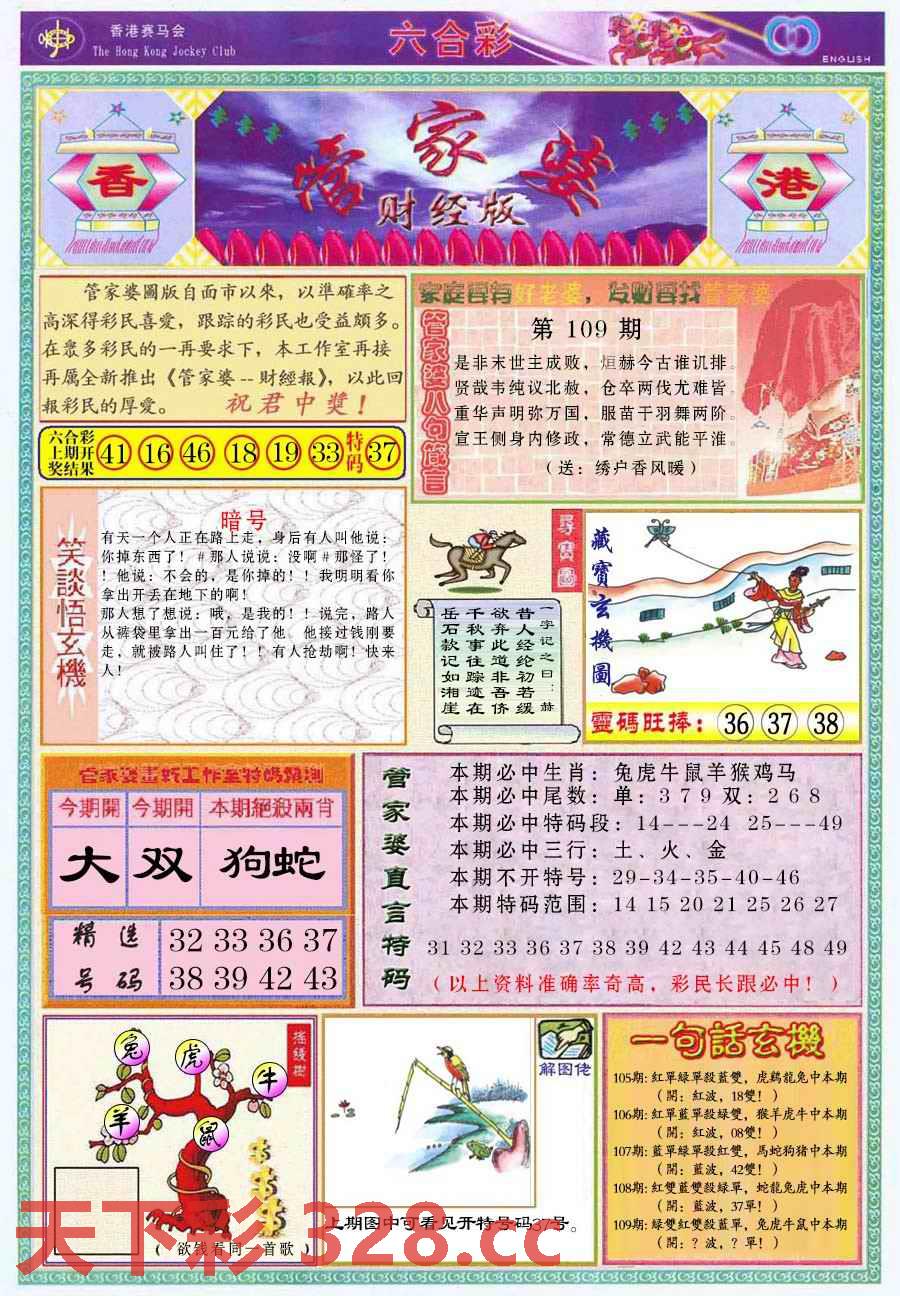 香港赛马会
The Hong Kong Jockey Club
六合彩
ENGLISH
香
管家婆
财经版
港
管家婆圖版自面市以來，以準確率之
高深得彩民喜愛，跟踪的彩民也受益頗多。
在衆多彩民的一再要求下，本工作室再接
再厲全新推出《管家婆--財經報》，以此回
報彩民的厚愛。 祝君中獎！
六合彩
上期开
奖结果
41 16 46 18 19 33 特码 37
家庭要有好老婆，发财要找管家婆
管家婆八句箴言
第 109 期
是非末世主成败，烜赫今古谁讥排。
贤哉韦纯议北赦，仓卒两伐尤难皆。
重华声明弥万国，服苗干羽舞两阶。
宣王侧身内修政，常德立武能平淮。
（送：绣户香风暖）
笑談悟玄機
暗号
有天一个人正在路上走，身后有人叫他说：
你掉东西了！＃那人说说：没啊＃那怪了！
！他说：不会的，是你掉的！！我明明看你
拿出开丢在地下的啊！
那人想了想说：哦，是我的！！说完，路人
从裤袋里拿出一百元给了他。他接过钱刚要
走，就被路人叫住了！！有人抢劫啊！快来
人！
尋寶圖
一字记之曰：赫
昔人经纶初若缓
欲弃此道非吾侪
千秋事往踪迹在
岳石款记如湘崖
藏寶玄機圖
靈碼旺捧： 36 37 38
管家婆畫報工作室特碼預測
今期開 今期開 本期絕殺兩肖
大 双 狗蛇
精選
号码
32 33 36 37
38 39 42 43
管家婆直言特码
本期必中生肖：兔虎牛鼠羊猴鸡马
本期必中尾数：单：3 7 9 双：2 6 8
本期必中特码段：14---24 25---49
本期必中三行：土、火、金
本期不开特号：29-34-35-40-46
本期特码范围：14 15 20 21 25 26 27
31 32 33 36 37 38 39 42 43 44 45 48 49
（以上资料准确率奇高，彩民长跟必中！）
摇錢樹
兔
虎
牛
羊
鼠
（欲钱看同一首歌）
解图佬
上期图中可看见开特号码37号。
一句話玄機
105期:紅單緑單殺藍雙，虎鷄龍兔中本期
（開：紅波，18雙！）
106期:紅單藍單殺緑雙，猴羊虎牛中本期
（開：紅波，08雙！）
107期:藍單緑單殺紅雙，馬蛇狗猪中本期
（開：藍波，42雙！）
108期:紅雙藍雙殺緑單，蛇龍兔虎中本期
（開：藍波，37單！）
109期:緑雙紅雙殺藍單，兔虎牛鼠中本期
（開：？波，？單！）
天下彩 328.cc